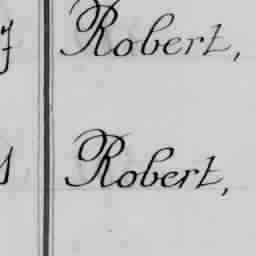 Robert,
Robert,